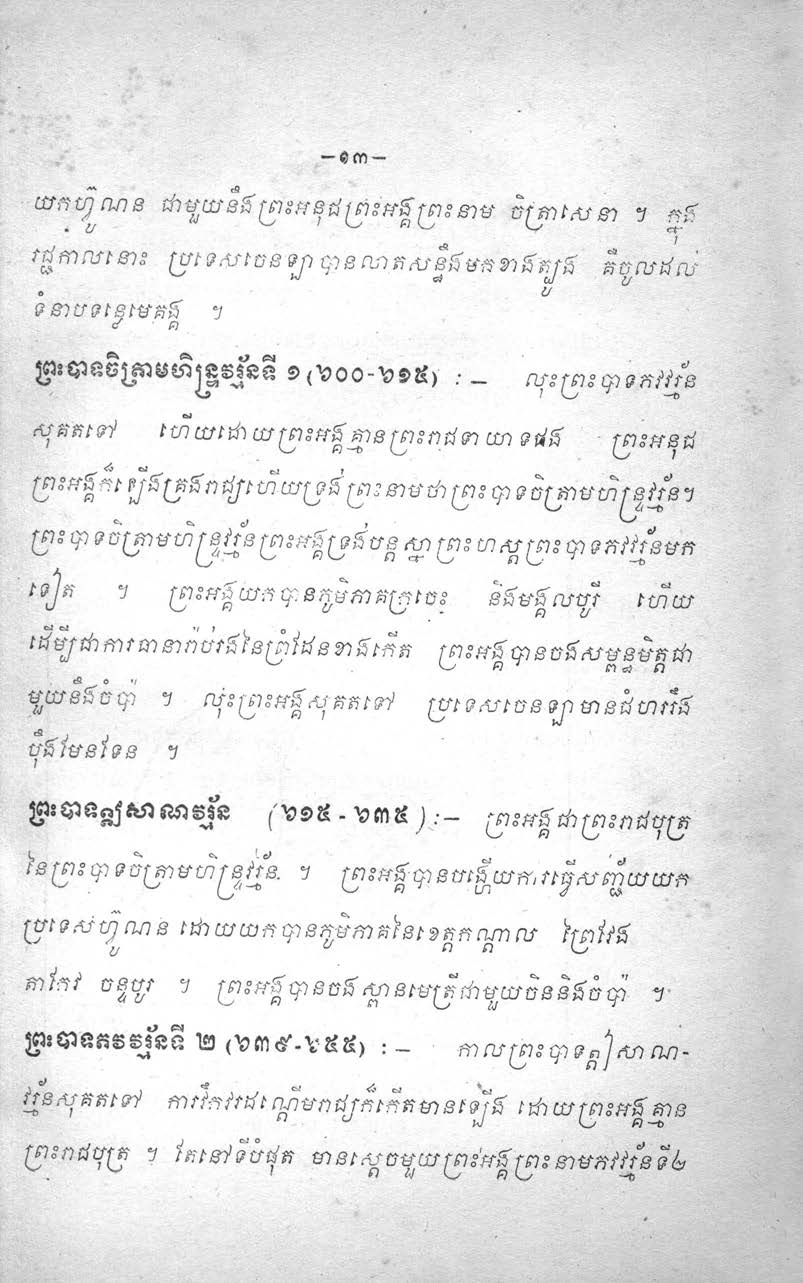 —១៣—
យកហ្វ៊ូណន ជាមួយនឹងព្រះអនុជព្រះអង្គព្រះនាម ចិត្រាសេនា ។ ក្នុង
រជ្ជកាលនោះ ប្រទេសចេនឡាបានលាតសន្ធឹងមកខាងត្បូង គឺចូលដល់
ទំនាបទន្លេមេគង្គ ។
ព្រះបាទចិត្រាមហិន្ទ្រវរ្ម័នទី ១ (៦០០-៦១៥) : — លុះព្រះបាទភវវរ្ម័ន
សុគតទៅ ហើយដោយព្រះអង្គគ្មានព្រះរាជទាយាទផង ព្រះអនុជ
ព្រះអង្គក៏ឡើងគ្រងរាជ្យហើយទ្រង់ព្រះនាមថាព្រះបាទចិត្រាមហិន្ទ្រវរ្ម័ន។
ព្រះបាទចិត្រាមហិន្ទ្រវរ្ម័នព្រះអង្គទ្រង់បន្តស្នាព្រះហស្តព្រះបាទភវវរ្ម័នមក
ទៀត ។ ព្រះអង្គយកបានភូមិភាគក្រចេះ និងមង្គលបូរី ហើយ
ដើម្បីជាការធានារ៉ាប់រងនៃព្រំដែនខាងកើត ព្រះអង្គបានចងសម្ពន្ធមិត្តជា
មួយនឹងចំប៉ា ។ លុះព្រះអង្គសុគតទៅ ប្រទេសចេនឡាមានជំហររឹង
ប៉ឹងមែនទែន ។
ព្រះបាទឦសាណវរ្ម័ន (៦១៥ - ៦៣៥) : — ព្រះអង្គជាព្រះរាជបុត្រ
នៃព្រះបាទចិត្រាមហិន្ទ្រវរ្ម័ន. ។ ព្រះអង្គបានបង្ហើយការធ្វើសញ្ជ័យយក
ប្រទេសហ្វ៊ូណន ដោយយកបានភូមិភាគនៃខេត្តកណ្តាល ព្រៃវែង
តាកែវ ចន្ទបូរ ។ ព្រះអង្គបានចងស្ពានមេត្រីជាមួយចិននិងចំប៉ា ។
ព្រះបាទភវវរ្ម័នទី ២ (៦៣៩-៦៥៥) : — កាលព្រះបាទឦសាណ-
វរ្ម័នសុគតទៅ ការវឹកវរដណ្តើមរាជ្យក៏កើតមានឡើង ដោយព្រះអង្គគ្មាន
ព្រះរាជបុត្រ ។ តែនៅទីបំផុត មានស្តេចមួយព្រះអង្គព្រះនាមភវវរ្ម័នទី២